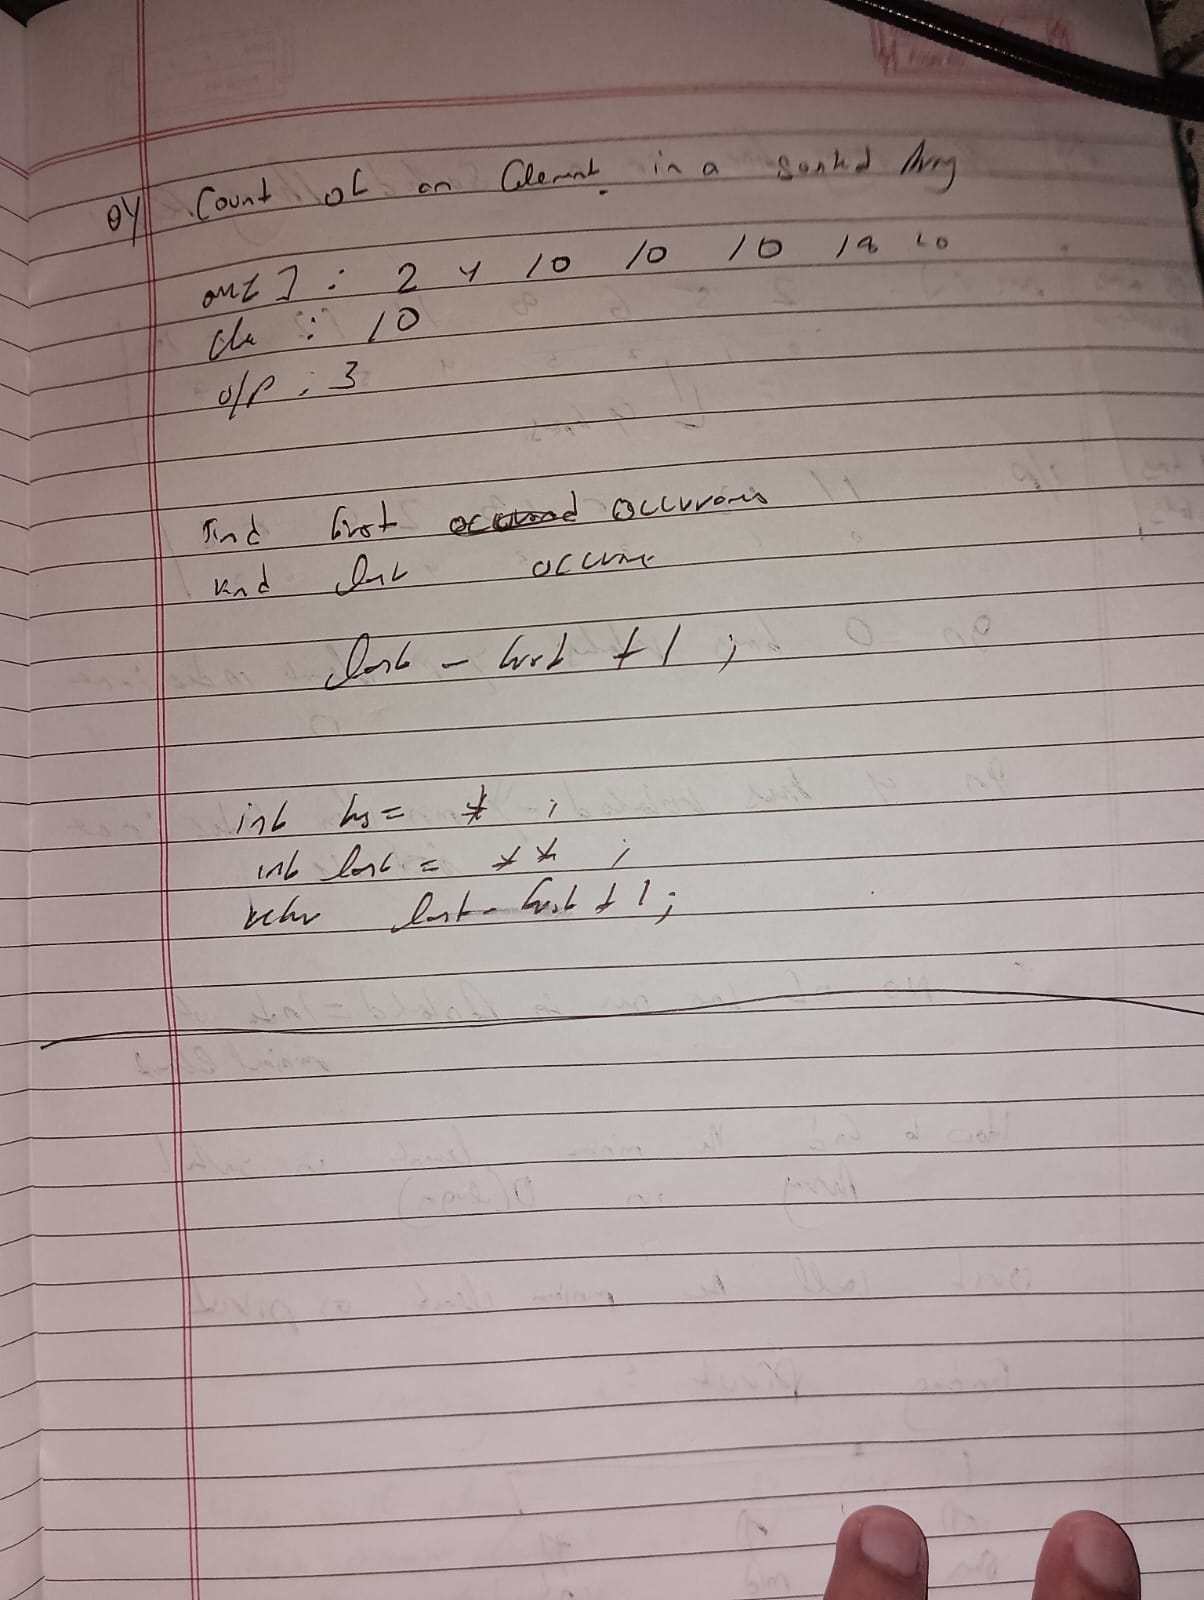 04 Count of an Element in a Sorted Array
arr[] : 2 4 10 10 10 18 20
ele : 10
o/p : 3
Find first occurrence
and last
last - first + 1 ;
int = * ;
int last = ** ;
last - first + 1 ;